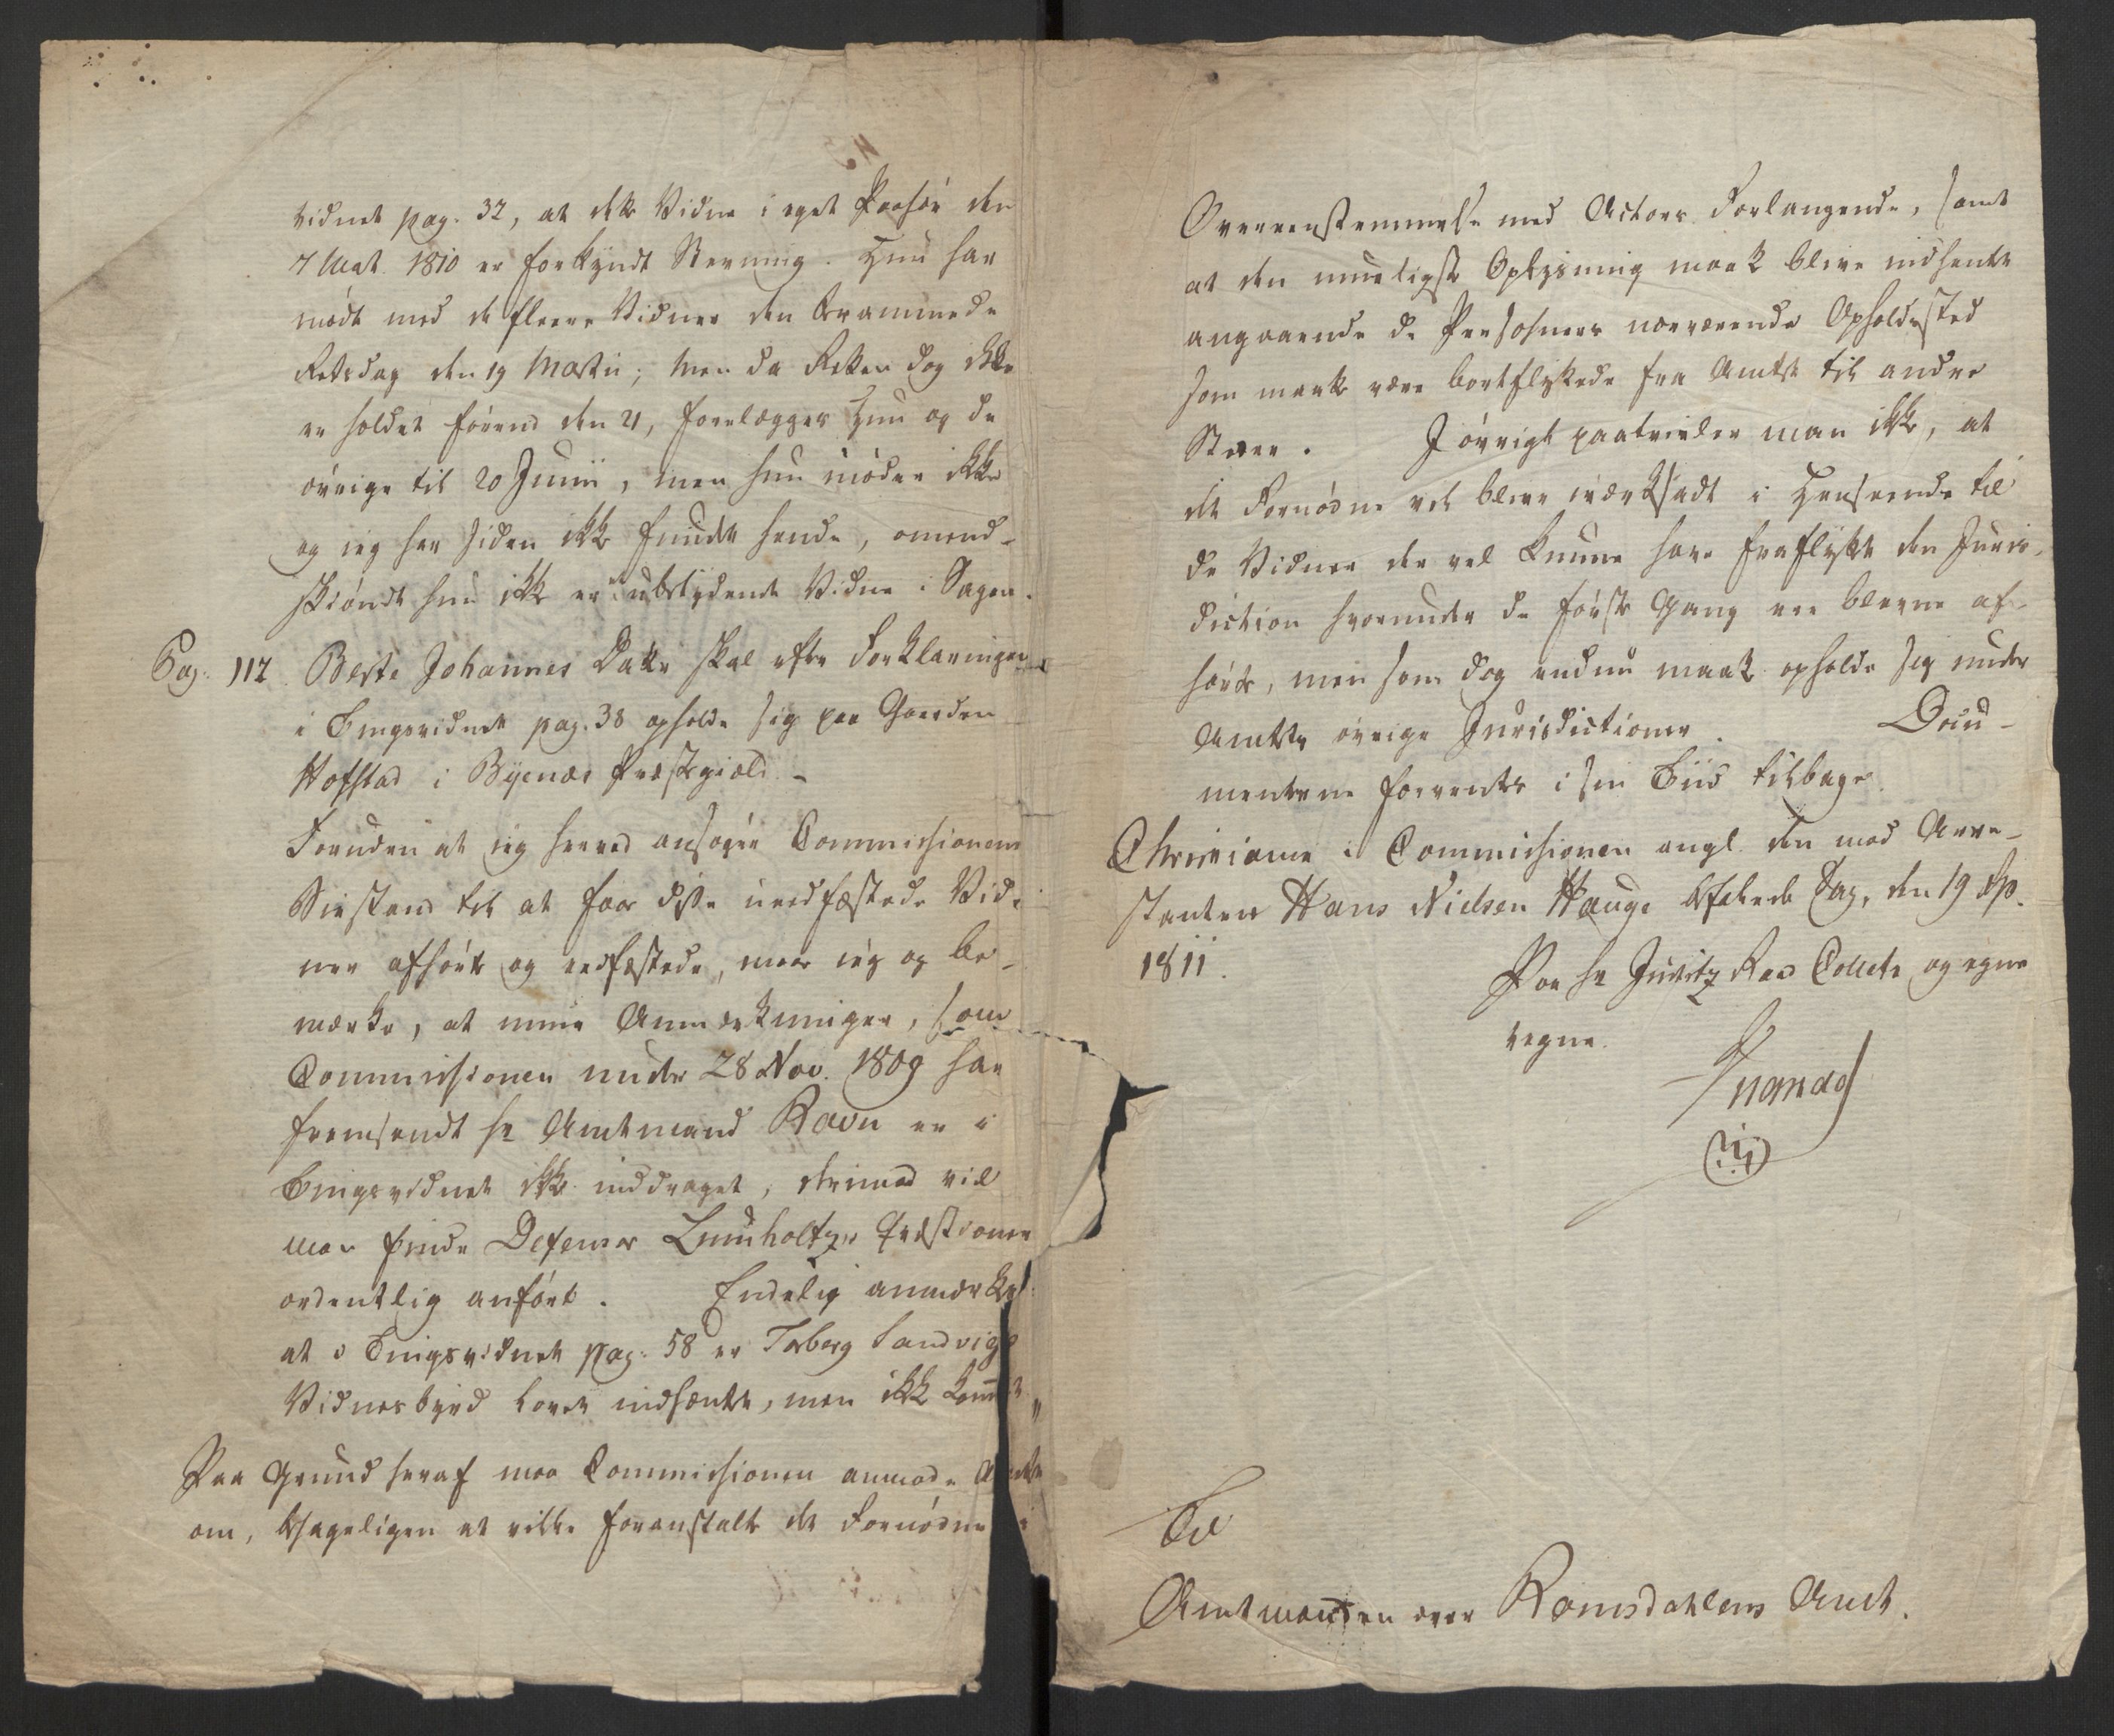 vidnet pag. 32, at dette Vidne i eget Paahør den
7 Mai 1810 er forkyndt Stevning. Hun har
mødt med de fleere Vidner den berammede
Retsdag den 19 Martii; men da Retten dog ikke
er holdet førend den 21, forelægges Hun og de
øvrige til 20 Junii, men hun møder ikke
og jeg har siden ikke fundet hende, omend-
skiøndt hun ikke er ubetydende Vidne i Sagen.
Pag. 112. Berte Johannes Datr skal efter Forklaringen
i Tingsvidnet pag. 38 opholde sig paa Gaarden
Hofstad i Byenæs Præstegield. -
Foruden at jeg herved ansøger Commissionens
Biestand til at faae disse uedfæstede Vid-
ner afhørte og eedfæstede, maae jeg og be-
mærke, at mine Anmærkninger, som
Commissionen under 28 Nov. 1809 har
fremsendt Hr Amtmand Ravn er i
Tingsvidnet ikke inddraget, derimod vil
man finde Defensor Lumholtzes Qvæstioner
ordentlig anført. Endelig anmærkes
at i Tingsvidnet pag: 58 er Torberg Sandvigs
Vidnesbyrd lovet indhentet, men ikke kommet"
Paa Grund heraf maa Commissionen anmode Amtet
om, behageligen at ville foranstalte det Fornødne i
Overeenstemmelse med Actors Forlangende, samt
at den mueligste Oplysning maatte blive indhentet
angaaende de Personers nærværende Opholdssted
som maatte være bortflyttede fra Amtet til andre
Stæder. I øvrigt paatvivler man ikke, at
det Fornødne vil blive iværksadt i Henseende til
de Vidner der vel kunne have fraflyttet den Juris-
diction hvorunder de første Gang ere blevne af-
hørte, men som dog endnu maatte opholde sig under
Amtets øvrige Jurisdictioner. Docu-
menterne forventes i sin Tiid tilbage.
Christiania i Commissionen angl. den mod Arre-
stanten Hans Nielsen Hauge befalede Sag, den 19 Sp.
1811.
Paa Hr Justitz Raad Collets og egne
vegne.
Til
Amtmanden over Romsdahlens Amt.